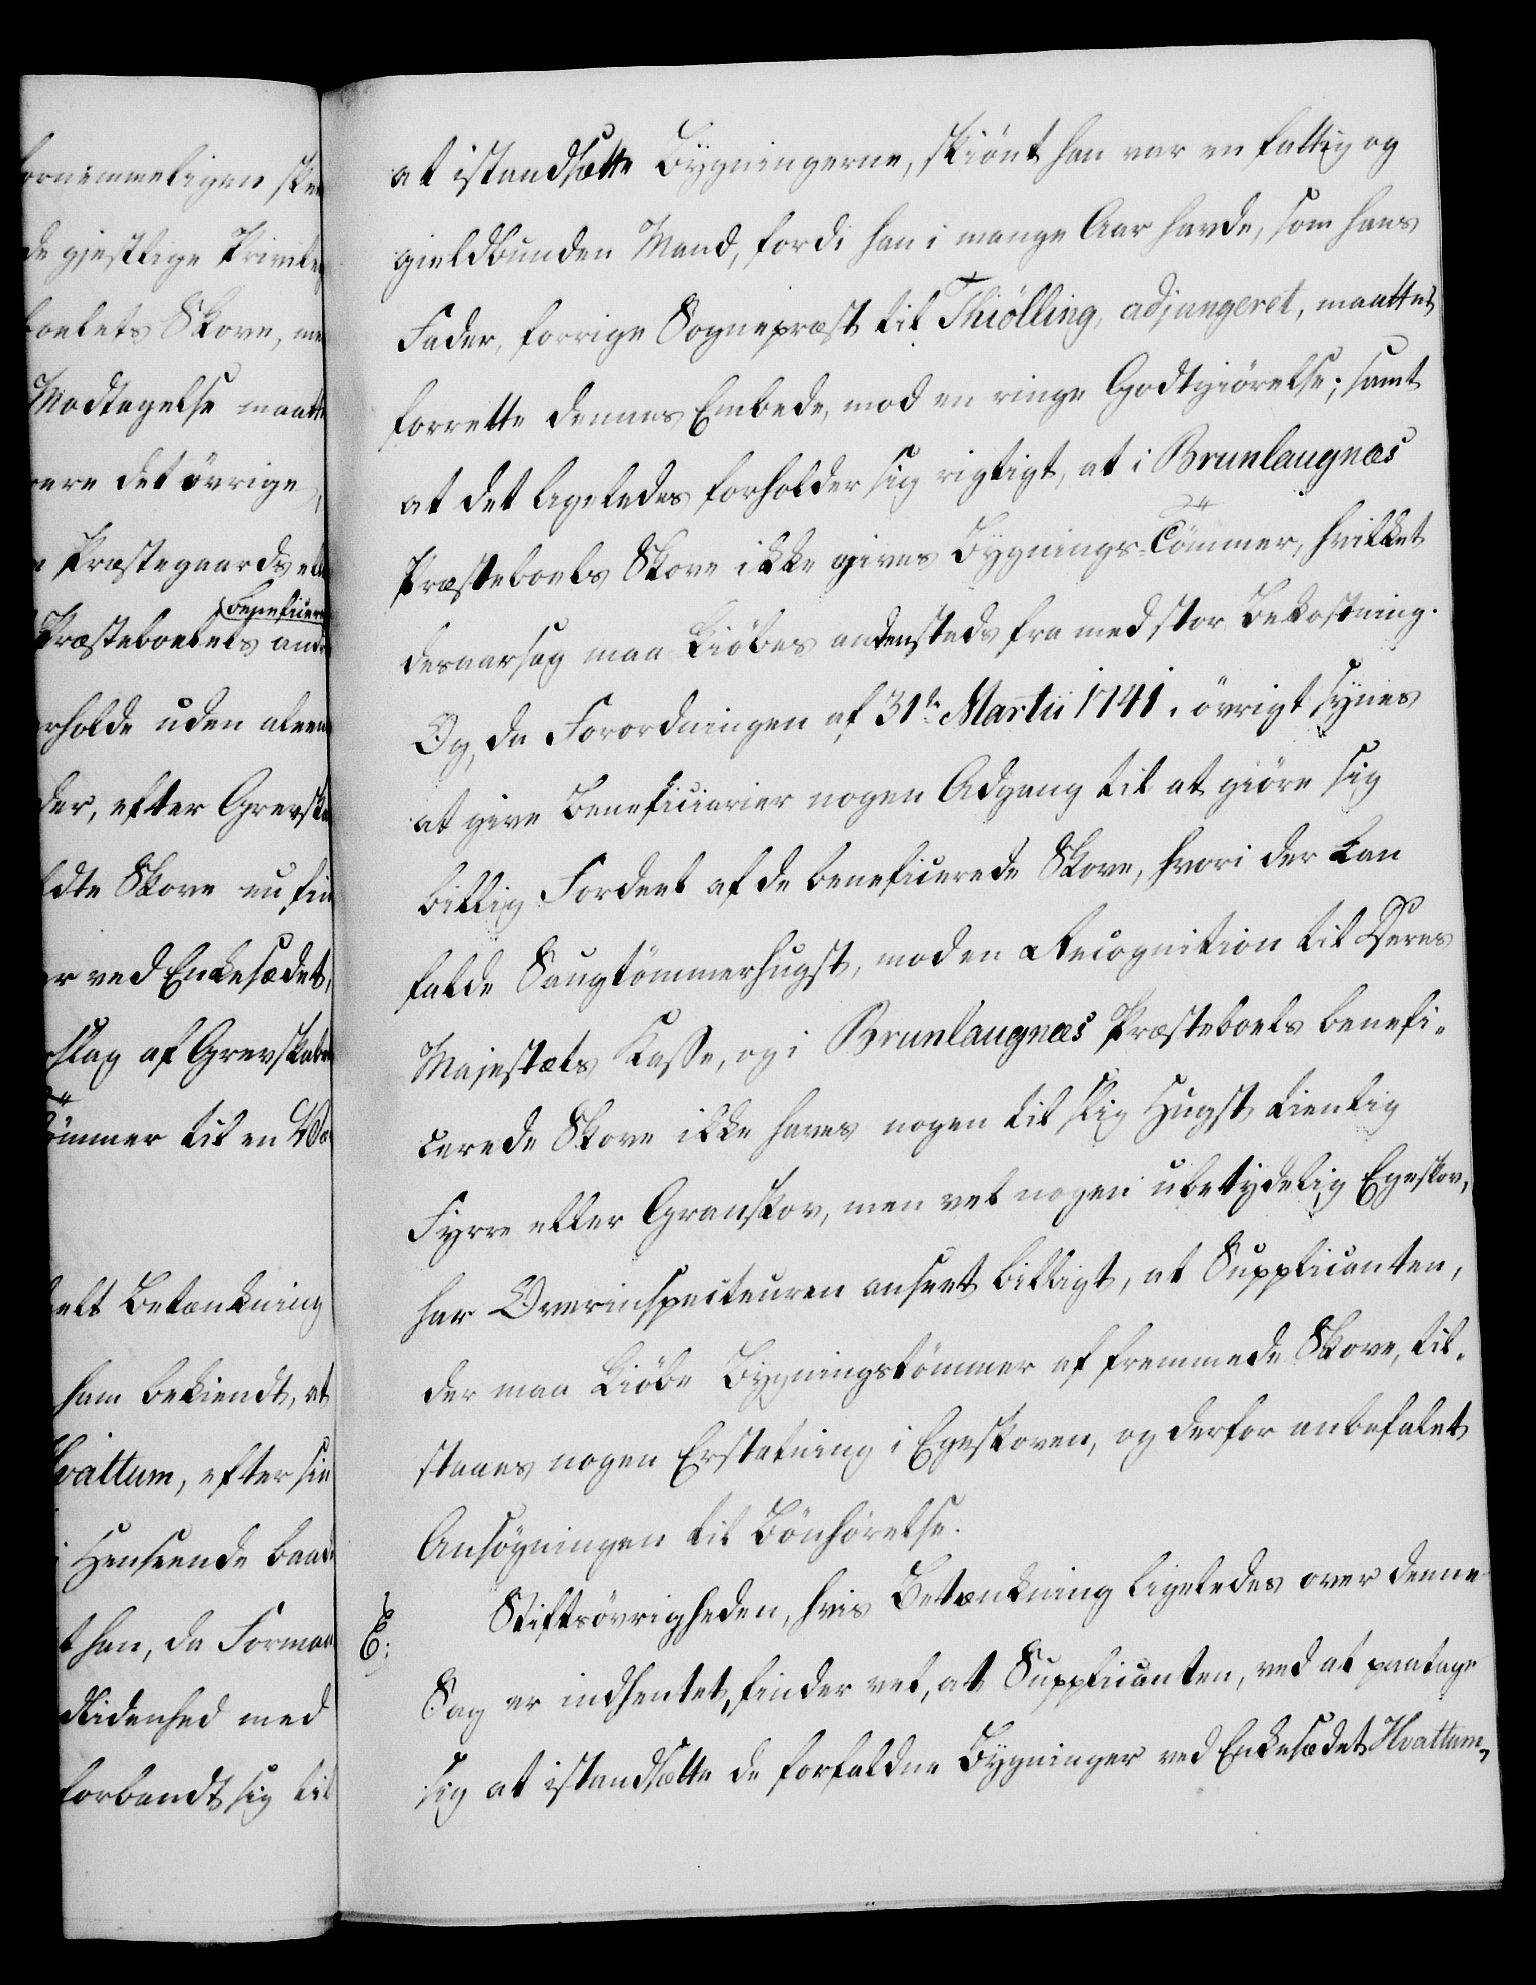 ornemmeligen
de gjestlige Privile
boelets Skove,
Modtagelse maatte
det øvrige,
Præstegaards
beneficer
Præsteboelets
rholde uden
der, efter Grevska
ldte Skove nu
r ved Enkesædet,
slag af Grevskabe
Tömmer til en
helt Betænkning
ham bekiendt, at
Hvattum, efter sin
i Henseende baade
t han, da Forman
ledenhed med
forbandt sig til
at istandsætte Bygningerne, skiönt han var en fattig og
gieldbunden Mand, fordi han i mange Aar havde, som hans
Fader, forrige Sognepræst til Thiölling, adjungeret, maattet
forrette dennes Embede, mod en ringe Godtgiörelse; samt
at det ligeledes forholder sig rigtigt, at i Brunlaugnæs
Præsteboels Skove ikke gives Bygnings-Tömmer, hvilket
desaarsag maa kiöbes andensteds fra med stor Bekostning.
Og, da Forordningen af 31te Martii 1741. övrigt synes
at give Beneficiarier nogen Adgang til at giöre sig
billig Fordeel af de beneficerede Skove, hvori der kan
falde Saugtömmerhugst, mod en Recognition til Deres
Majestæts Kasse, og i Brunlaugnæs Præsteboels benefi-
cerede Skove ikke haves nogen til slig Hugst tienlig
Fyrre eller Granskov, men vel nogen ubetydelig Egeskov,
har Overinspecteuren anseet billigt, at Supplicanten,
der maa kiöbe Bygningstömmer af fremmede Skove, til-
staaes nogen Erstatning i Egeskoven, og derfor anbefalet
Ansögningen til Bönhörelse.
E: Stiftsövrigheden, hvis Betænkning ligeledes over denne
Sag er indhentet, finder vel, at Supplicanten, ved at paatage
sig at istandsætte de forfaldne Bygninger ved Enkesædet Hvattum,